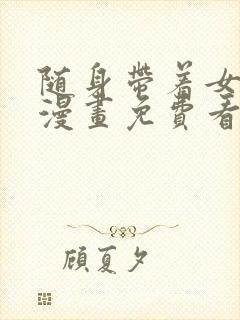 随身带着女
漫畫免費看
顾夏夕